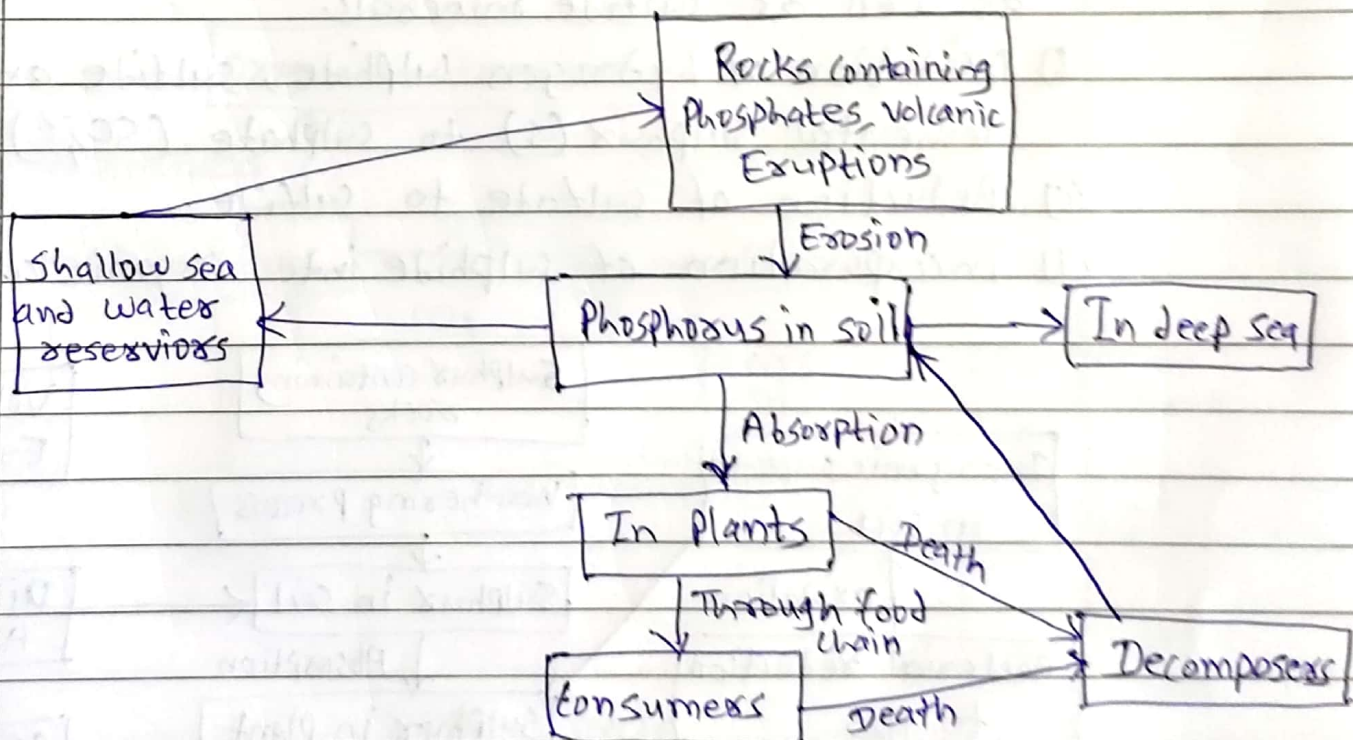 Rocks containing
Phosphates, volcanic
Eruptions
Erosion
Shallow sea
and water
reserviors
Phosphorus in soil
In deep sea
Absorption
In plants
Death
Through food
chain
Decomposers
Consumers
Death